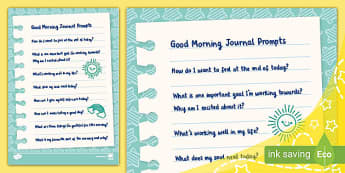 Good Morning Journal Prompts
How do I want to feel at the end of today?
What is one important goal I'm working towards?
Why am I excited about it?
What's working well in my life?
What does my soul need today?
What are three things I'm grateful for this morning?
Good Morning Journal Prompts
How do I want to feel at the end of today?
What is one important goal I'm working towards?
Why am I excited about it?
What's working well in my life?
What does my soul need today?
ink saving
Eco